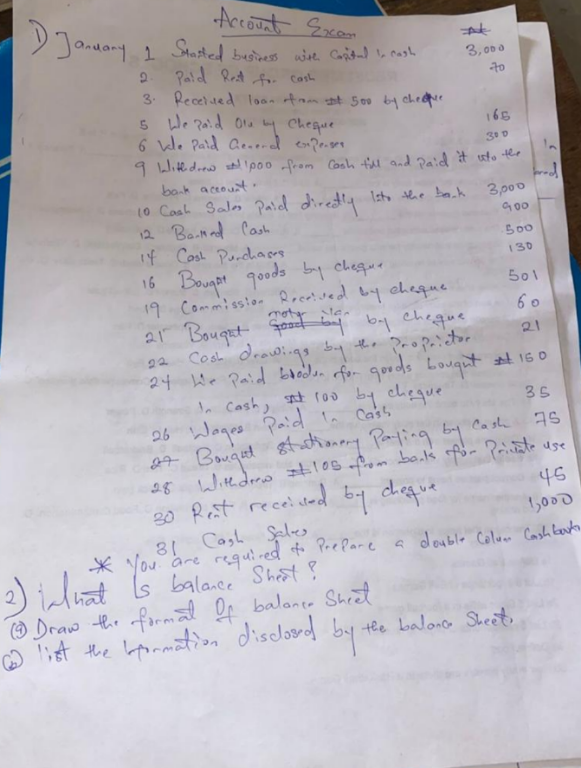 Account Exam
1) January 1 Started business with Capital in cash 3,000
2. Paid Rent for cash 70
3. Received loan from ₦ 500 by cheque
5 We Paid by Cheque 165
6 We Paid General expenses 300
9 Withdrew ₦1,000 from Cash till and Paid it into the
bank account.
10 Cash Sales Paid directly Into the bank 3,000
12 Banked Cash 900
14 Cash Purchases 500
16 Bought goods by cheque 130
19 Commission Received by cheque 501
21 Bought motor van by cheque 60
22 Cash drawings by the Proprietor 21
24 We Paid for goods bought ₦ 150
In cash, ₦ 100 by cheque
26 Wages Paid In Cash 35
27 Bought Stationery Paying by Cash 75
28 Withdrew ₦105 from bank for Private use
30 Rent received by cheque 45
31 Cash Sales 1,000
* You are required to Prepare a double Colum Cashbook
2) What Is balance Sheet?
(a) Draw the format Of balance Sheet
(b) list the Information disclosed by the balance Sheet.